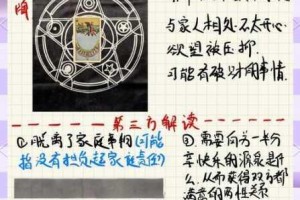 与家人相处不太开心
欲望被压抑
可能有破财的事情
第三方解读
①脱离了家庭车辆(可能
指没有担负起家庭责任)
③需要向另一半分
享快乐的源泉是什
么,从而获得双方都
满意的两性关系